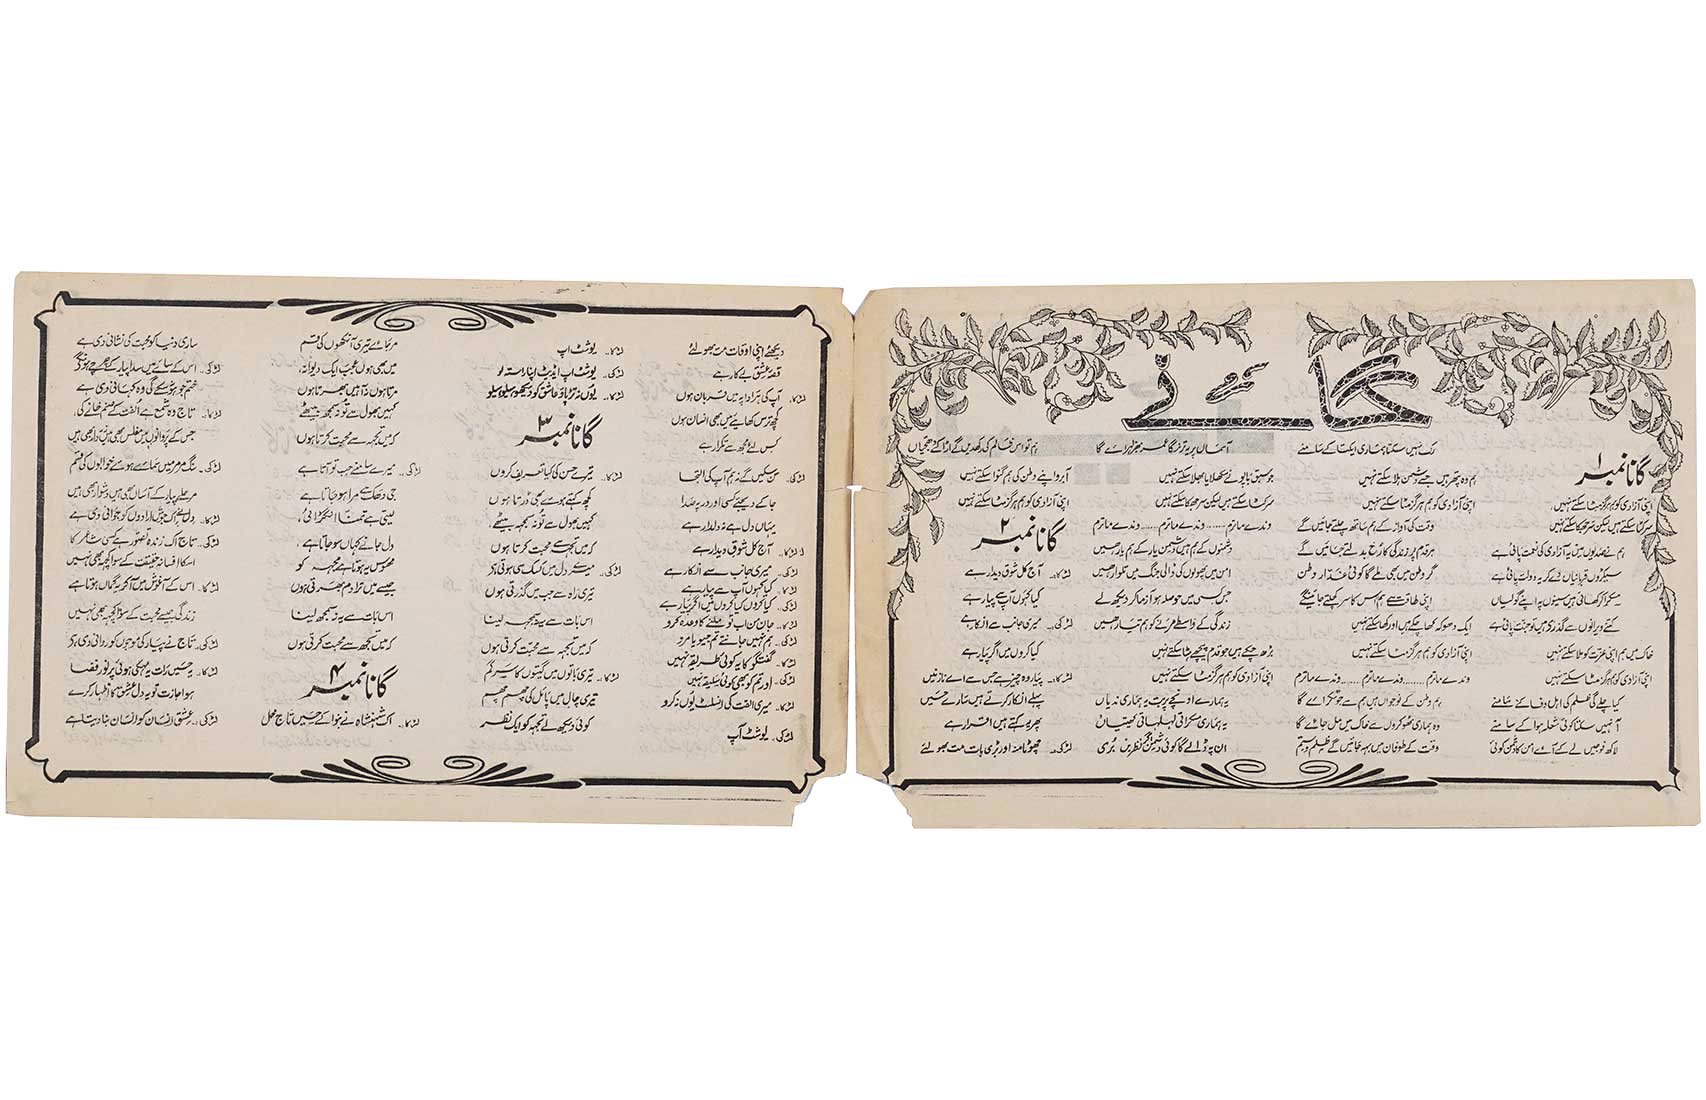 گانے
گانا نمبر ۱
اپنی آزادی کو ہم ہرگز مٹا سکتے نہیں
سر کٹا سکتے ہیں لیکن سر جھکا سکتے نہیں
ہم نے صدیوں میں یہ آزادی کی نعمت پائی ہے
سیکڑوں قربانیاں دے کر یہ دولت پائی ہے
مسکرا کر کھائی ہیں سینوں پہ اپنے گولیاں
کتنے ویرانوں سے گذرے ہیں تو جنت پائی ہے
خاک میں ہم اپنی عزت کو ملا سکتے نہیں
اپنی آزادی کو ہم ہرگز مٹا سکتے نہیں
کیا چلے گی ظلم کی اہل وفا کے سامنے
آ نہیں سکتا کوئی شعلہ ہوا کے سامنے
لاکھ فوجیں لے کے آئے امن کا دشمن کوئی
رک نہیں سکتا ہماری ایکتا کے سامنے
ہم وہ پتھر ہیں جسے دشمن ہلا سکتے نہیں
اپنی آزادی کو ہم ہرگز مٹا سکتے نہیں
وقت کی آواز کے ہم ساتھ چلتے جائیں گے
ہر قدم پر زندگی کا رخ بدلتے جائیں گے
گر وطن میں بھی ملے گا کوئی غدار وطن
اپنی طاقت سے ہم اس کا سر کچلتے جائیں گے
ایک دھوکہ کھا چکے ہیں اور کھا سکتے نہیں
اپنی آزادی کو ہم ہرگز مٹا سکتے نہیں
وندے ماترم ...... وندے ماترم ...... وندے ماترم
ہم وطن کے نوجواں ہیں ہم سے جو ٹکرائے گا
وہ ہماری ٹھوکروں سے خاک میں مل جائے گا
وقت کے طوفان میں بہہ جائیں گے ظلم و ستم
آسماں پر یہ ترنگا عمر بھر لہرائے گا
جو سبق باپو نے سکھلایا بھلا سکتے نہیں
سر کٹا سکتے ہیں لیکن سر جھکا سکتے نہیں
وندے ماترم ...... وندے ماترم ...... وندے ماترم
دشمنوں کے ہم ہیں دشمن یار کے ہم یار ہیں
امن میں پھولوں کی ڈالی جنگ میں تلوار ہیں
جس کسی میں حوصلہ ہو آزما کر دیکھ لے
زندگی کے واسطے مرنے کو ہم تیار ہیں
بڑھ چکے ہیں جو قدم پیچھے ہٹا سکتے نہیں
اپنی آزادی کو ہم ہرگز مٹا سکتے نہیں
یہ ہمارے اونچے پربت یہ ہماری ندیاں
یہ ہماری مسکراتی لہلہاتی کھیتیاں
ان پہ ڈالے گا کوئی دشمن اگر نظریں بری
ہم تو اس ظالم کی رکھ دیں گے اڑا کر دھجیاں
آبرو اپنے وطن کی ہم گنوا سکتے نہیں
اپنی آزادی کو ہم ہرگز مٹا سکتے نہیں
گانا نمبر ۲
لڑکا.. آج کل شوق دیدار ہے
کیا کہوں آپ سے پیار ہے
لڑکی.. میری جانب سے انکار ہے
کیا کروں میں اگر پیار ہے
لڑکا.. پیار وہ چیز ہے جس سے اے نازنیں
پہلے انکار کرتے ہیں سارے حسیں
پھر یہ کہتے ہیں اقرار ہے
لڑکی.. چھوٹا منہ اور بڑی بات مت بھولئے
دیکھئے اپنی اوقات مت بھولئے
قصہ عشق بے کار ہے
لڑکا.. آپ کی ہر ادا پہ میں قربان ہوں
کچھ ترس کھایئے میں بھی انسان ہوں
کس لئے مجھ سے تکرار ہے
لڑکی.. سن سکیں گے نہ ہم آپ کی التجا
جا کے دیجئے کسی اور در پہ صدا
یہاں دل ہے نہ دلدار ہے
لڑکا.. آج کل شوق دیدار ہے
لڑکی.. میری جانب سے انکار ہے
لڑکا.. کیا کہوں آپ سے پیار ہے
لڑکی.. کیا کروں کیا کروں میں اگر پیار ہے
لڑکا.. جان من اب تو ملنے کا وعدہ کرو
لڑکی.. ہم نہیں جانتے تم جیو یا مرو
لڑکا.. گفتگو کا یہ کوئی طریقہ نہیں
لڑکی.. اور تم کو بھی کوئی سلیقہ نہیں
لڑکا.. میری الفت کی انسلٹ یوں نہ کرو
لڑکی.. یو شٹ آپ
لڑکا.. یو شٹ اپ
لڑکی.. یو شٹ اپ ایڈیٹ اپنا راستہ لو
لڑکا.. یوں نہ تڑپاؤ عاشق کو دیکھو سلو سلو
گانا نمبر ۳
تیرے حسن کی کیا تعریف کروں
کچھ کہتے ہوئے بھی ڈرتا ہوں
کہیں بھول سے تو نہ سمجھ بیٹھے
کہ میں تجھ سے محبت کرتا ہوں
لڑکی.. میرے دل میں کسک سی ہوتی ہے
تیری راہ سے جب میں گذرتی ہوں
اس بات سے یہ نہ سمجھ لینا
کہ میں تجھ سے محبت کرتی ہوں
لڑکا.. تیری باتوں میں گیتوں کا سرگم
تیری چال میں پائل کی چھم چھم
کوئی دیکھ لے تجھ کو ایک نظر
مر جائے تیری آنکھوں کی قسم
میں بھی ہوں عجب ایک دیوانہ
مرتا ہوں نہ آہیں بھرتا ہوں
کہیں بھول سے تو نہ سمجھ بیٹھے
کہ میں تجھ سے محبت کرتا ہوں
لڑکی.. میرے سامنے جب تو آتا ہے
جی دھک سے مرا ہو جاتا ہے
لیتی ہے تمنا انگڑائی
دل جانے کہاں سو جاتا ہے
محسوس یہ ہوتا ہے مجھ کو
جیسے میں ترا دم بھرتی ہوں
اس بات سے یہ نہ سمجھ لینا
کہ میں تجھ سے محبت کرتی ہوں
گانا نمبر ۴
لڑکا.. اک شہنشاہ نے بنوا کے حسیں تاج محل
ساری دنیا کو محبت کی نشانی دی ہے
لڑکی.. اس کے سائے میں سدا پیار کے چرچے ہوں گے
ختم جو ہو نہ سکے گی وہ کہانی دی ہے
لڑکا.. تاج وہ شمع ہے الفت کے صنم خانے کی
جس کے پروانوں میں مفلس بھی ہیں زردار بھی ہیں
لڑکی.. سنگ مرمر میں سمائے ہوئے خوابوں کی قسم
مرحلے پیار کے آساں بھی ہیں دشوار بھی ہیں
لڑکا.. دل نے اک جوش ارادوں کو جوانی دی ہے
لڑکی.. تاج اک زندہ تصور ہے کسی شاعر کا
اس کا افسانہ حقیقت کے سوا کچھ بھی نہیں
لڑکا.. اس کے آغوش میں آ کر یہ گماں ہوتا ہے
زندگی جیسے محبت کے سوا کچھ بھی نہیں
لڑکی.. تاج نے پیار کی موجوں کو روانی دی ہے
لڑکا.. یہ حسیں رات یہ مہکی ہوئی پرنور فضا
ہو اجازت تو یہ دل عشق کا اظہار کرے
لڑکی.. عشق انسان کو انسان بنا دیتا ہے